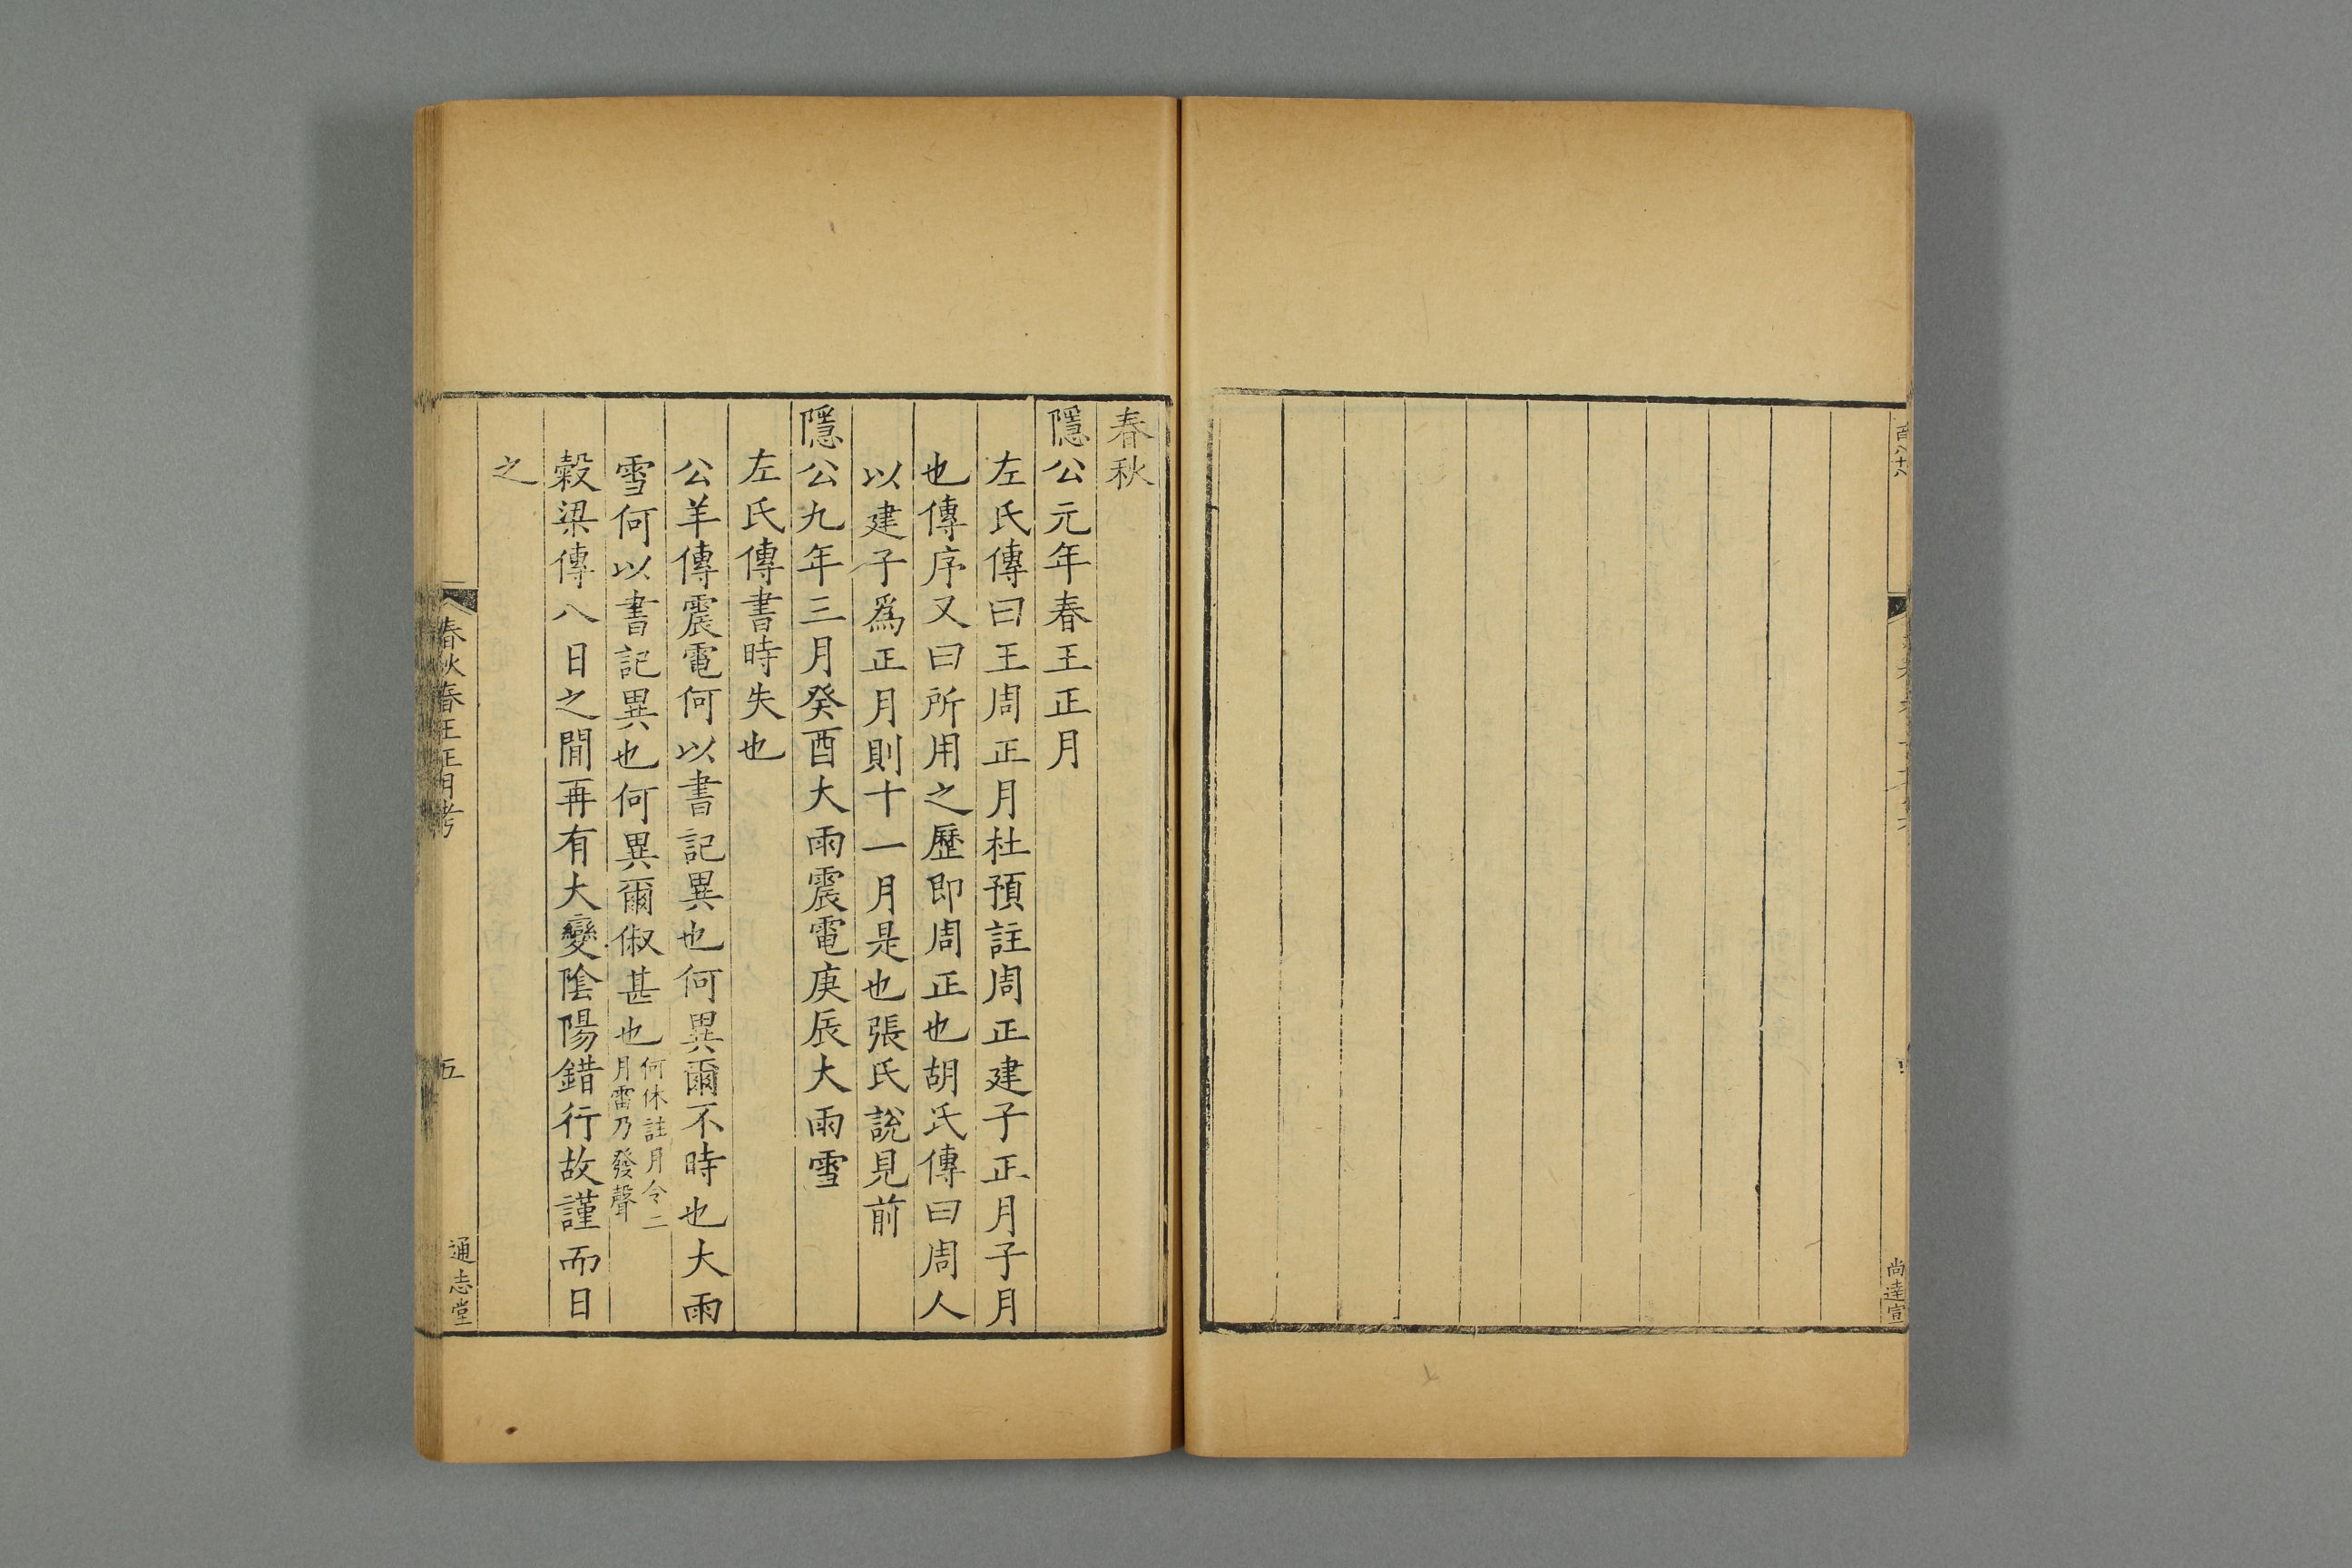 尚達宣
春秋
隱公元年春王正月
左氏傳曰王周正月杜預註周正建子正月子月
也傳序又曰所用之歷即周正也胡氏傳曰周人
以建子爲正月則十一月是也張氏說見前
隱公九年三月癸酉大雨震電庚辰大雨雪
左氏傳書時失也
公羊傳震電何以書記異也何異爾不時也大雨
雪何以書記異也何異爾俶甚也何休註月令二
月雷乃發聲
穀梁傳八日之間再有大變陰陽錯行故謹而日
之
春秋春王正月考
五
通志堂